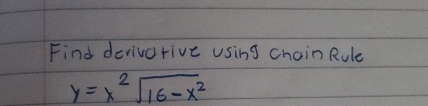 Find derivative using chain Rule
y = x² √(16 - x²)